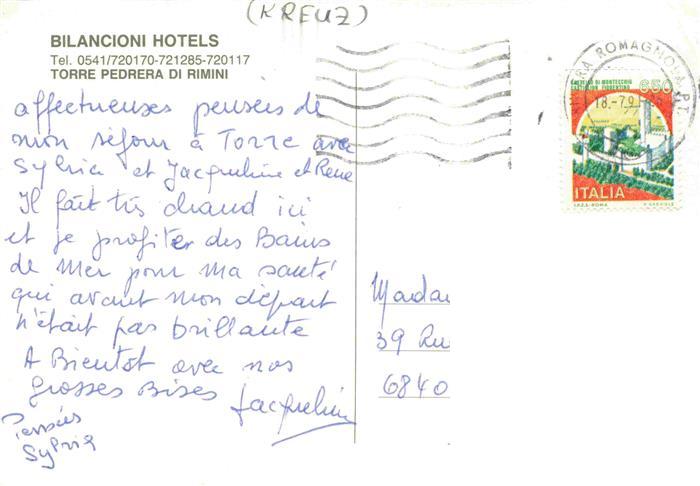 (KREUZ)
BILANCIONI HOTELS
Tel. 0541/720170-721285-720117
TORRE PEDRERA DI RIMINI
affectueuses pensées de
mon séjour à Torre avec
Sylvia et Jacqueline et René
Il fait très chaud ici
et je profiter des Bains
de mer pour ma santé
qui avant mon départ
n'était pas brillante
A Bientot avec nos
grosses Bises Jacqueline
Pensées
Sylvia
ROMAGNOLA
18.-7.9
CASTELLO DI MONTECCHIO
CASTIGLION FIORENTINO
650
ITALIA
I.P.Z.S.-ROMA
Mada
39 Ru
6840